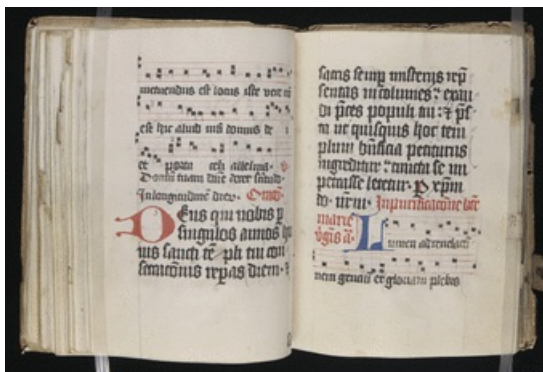 metuendus est locus iste vere
est hic aliud nisi domus de i
et porta celi alleluia. v
Domū tuam dn̄e decet
In longitudinē dierꝝ.
Deus qui nobis p
singulos annos hu
ius sancti tēpli tui con
secracōnis repas diem. &
sacris semp misteriis rep̄
sentas incolumes: exau
di p̄ces populi tui: & p̄s
ta ut quisquis hoc tem
plum bn̄ficia petiturus
ingreditur: cuncta se im
petrasse letetur. P xp̄m
do. nrm. In purificacōne
marie
v̄gis ā. Lumen ad revelaci
nem genciū et gloriam plebis